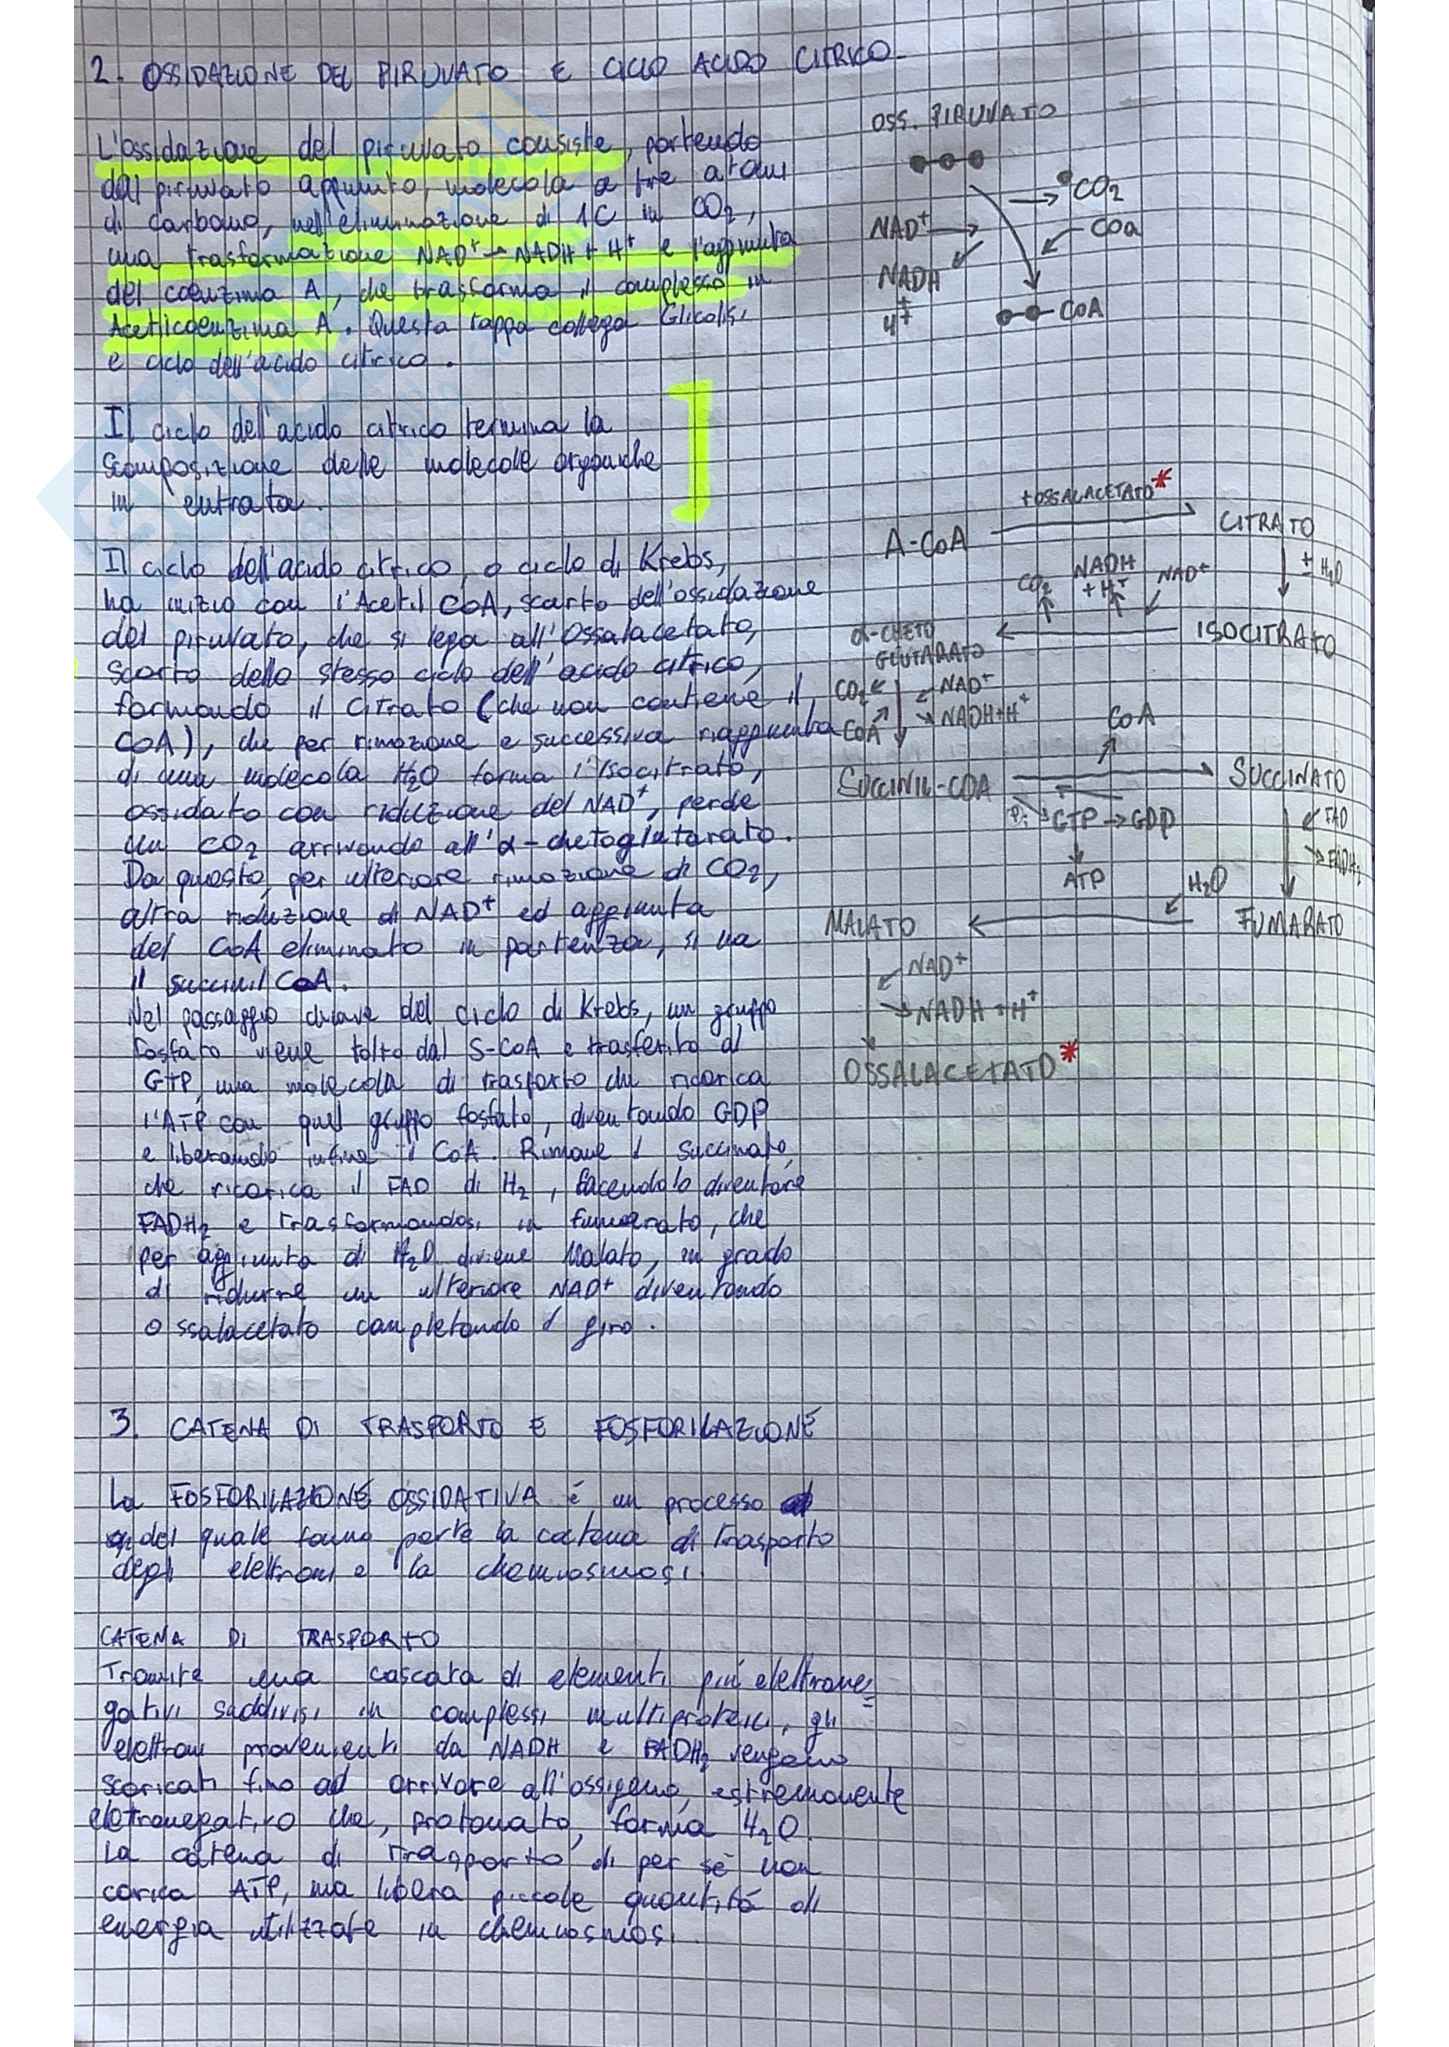 2. OSSIDAZIONE DEL PIRUVATO E CICLO ACIDO CITRICO
L'ossidazione del piruvato consiste, partendo
dal piruvato appunto, molecola a tre atomi
di carbonio, nell'eliminazione di 1C in CO2,
una trasformazione NAD+ → NADH + H+ e l'aggiunta
del coenzima A, che trasforma il complesso in
Acetilcoenzima A. Questa tappa collega Glicolisi
e ciclo dell'acido citrico.
OSS. PIRUVATO
CO2
NAD+
COa
NADH
H+
CoA
Il ciclo dell'acido citrico termina la
scomposizione delle molecole organiche
in entrata.
Il ciclo dell'acido citrico, o ciclo di Krebs,
ha inizio con l'Acetil CoA, scarto dell'ossidazione
del piruvato, che si lega all'Ossalacetato,
scarto dello stesso ciclo dell'acido citrico,
formando il Citrato (che non contiene il
CoA), che per rimozione e successiva riaggiunta
di una molecola H2O forma l'Isocitrato,
ossidato con riduzione del NAD+, perde
un CO2 arrivando all'α-chetoglutarato.
Da questo, per ulteriore rimozione di CO2,
altra riduzione di NAD+ ed aggiunta
del CoA eliminato in partenza, si ha
il succinil CoA.
Nel passaggio chiave del ciclo di Krebs, un gruppo
fosfato viene tolto dal S-CoA e trasferito al
GTP, una molecola di trasporto che ricarica
l'ATP con quel gruppo fosfato, diventando GDP
e liberando infine il CoA. Rimane il Succinato,
che ricarica il FAD di H2, facendolo diventare
FADH2 e trasformandosi in fumarato, che
per aggiunta di H2O diviene Malato, in grado
di ridurre un ulteriore NAD+ diventando
Ossalacetato completando il giro.
+OSSALACETATO*
A-CoA
CITRATO
± H2O
CO2 NADH + H+ NAD+
α-CHETO
GLUTARATO
ISOCITRATO
CO2 NAD+
CoA NADH+H+
CoA
SUCCINIL-COA
SUCCINATO
Pi GTP → GDP
FAD
FADH2
ATP
H2O
MALATO
FUMARATO
NAD+
NADH + H+
OSSALACETATO*
3. CATENA DI TRASPORTO E FOSFORILAZIONE
La FOSFORILAZIONE OSSIDATIVA è un processo
del quale fanno parte la catena di trasporto
degli elettroni e la chemiosmosi.
CATENA DI TRASPORTO
Tramite una cascata di elementi più elettrone=
gativi suddivisi in complessi multiproteici, gli
elettroni provenienti da NADH e FADH2 vengono
scaricati fino ad arrivare all'ossigeno, estremamente
eletronegativo che, protonato, forma H2O.
La catena di trasporto di per sè non
carica ATP, ma libera piccole quantità di
energia utilizzate in chemiosmosi.